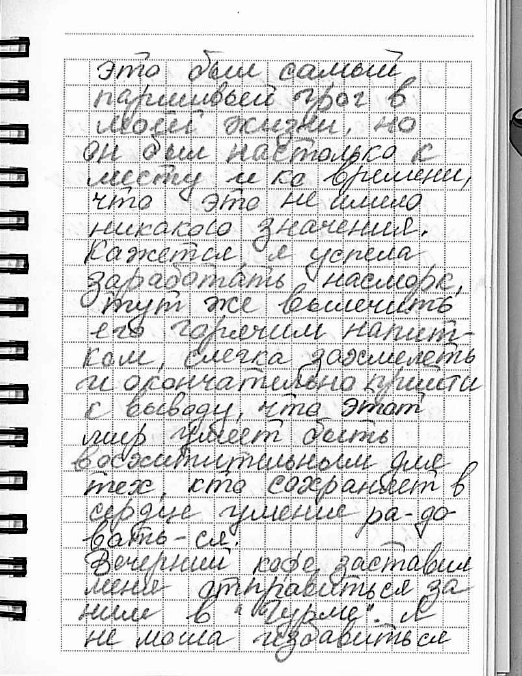 это был самый
паршивый грог в
моей жизни, но
он был настолько к
месту и ко времени,
что это не имело
никакого значения.
Кажется, я успела
заработать насморк,
тут же вылечить
его горячим напит-
ком, слегка захмелеть
и окончательно прийти
к выводу, что этот
мир умеет быть
восхитительным для
тех, кто сохраняет в
сердце умение ра-до-
вать-ся.
Вечерний кофе заставил
меня отправиться за
ним в "Гурме". Я
не могла избавиться